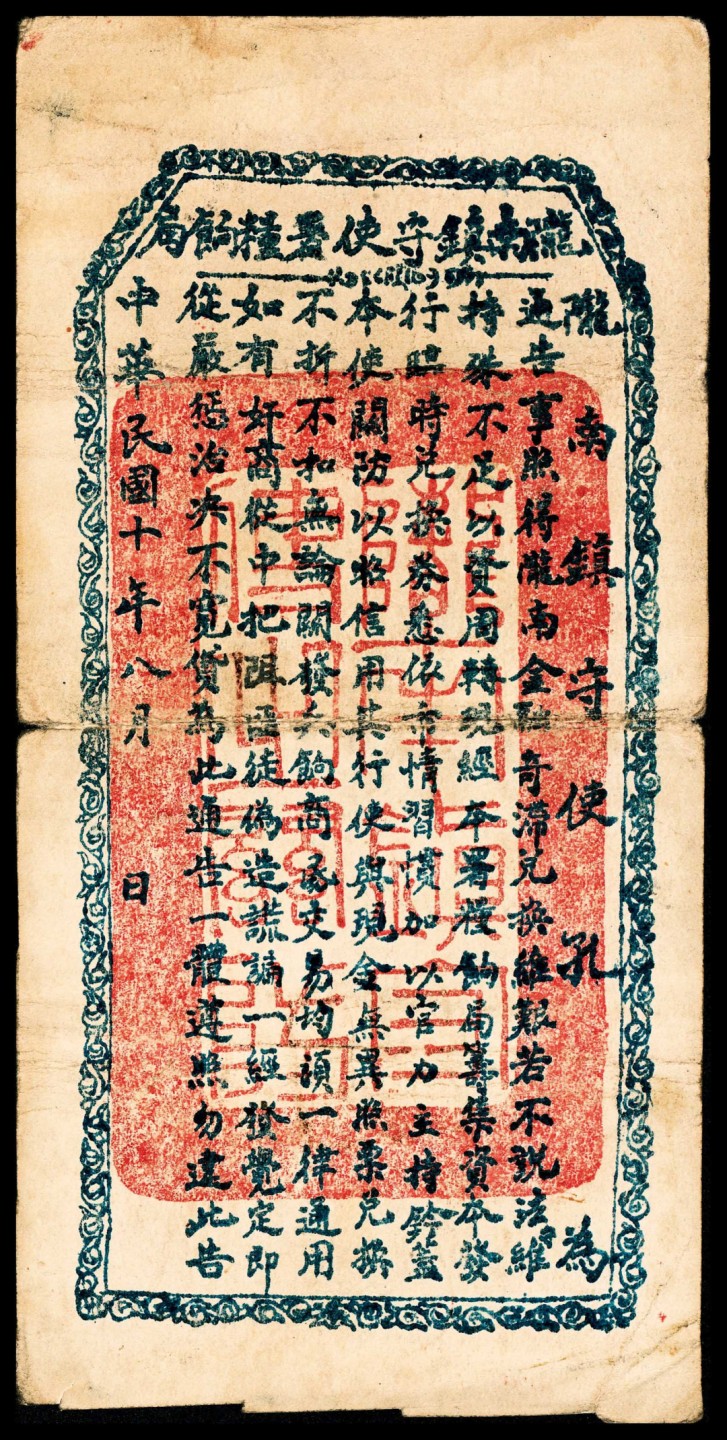 隴南鎮守使署糧餉局
隴南鎮守使孔為
通告事照得隴南金融奇滯兌換維艱若不設法維
持殊不足以資周轉現經本署糧餉局籌集資本發
行臨時兌換券悉依市情習慣加以官力主持鈐蓋
本使關防以昭信用其行使與現金無異照票兌換
不折不扣無論關發兵餉商民交易均須一律通用
如有奸商從中把阻匪徒偽造謊騙一經發覺定即
從嚴懲治決不寬貸為此通告一體遵照勿違此告
中華民國十年八月 日